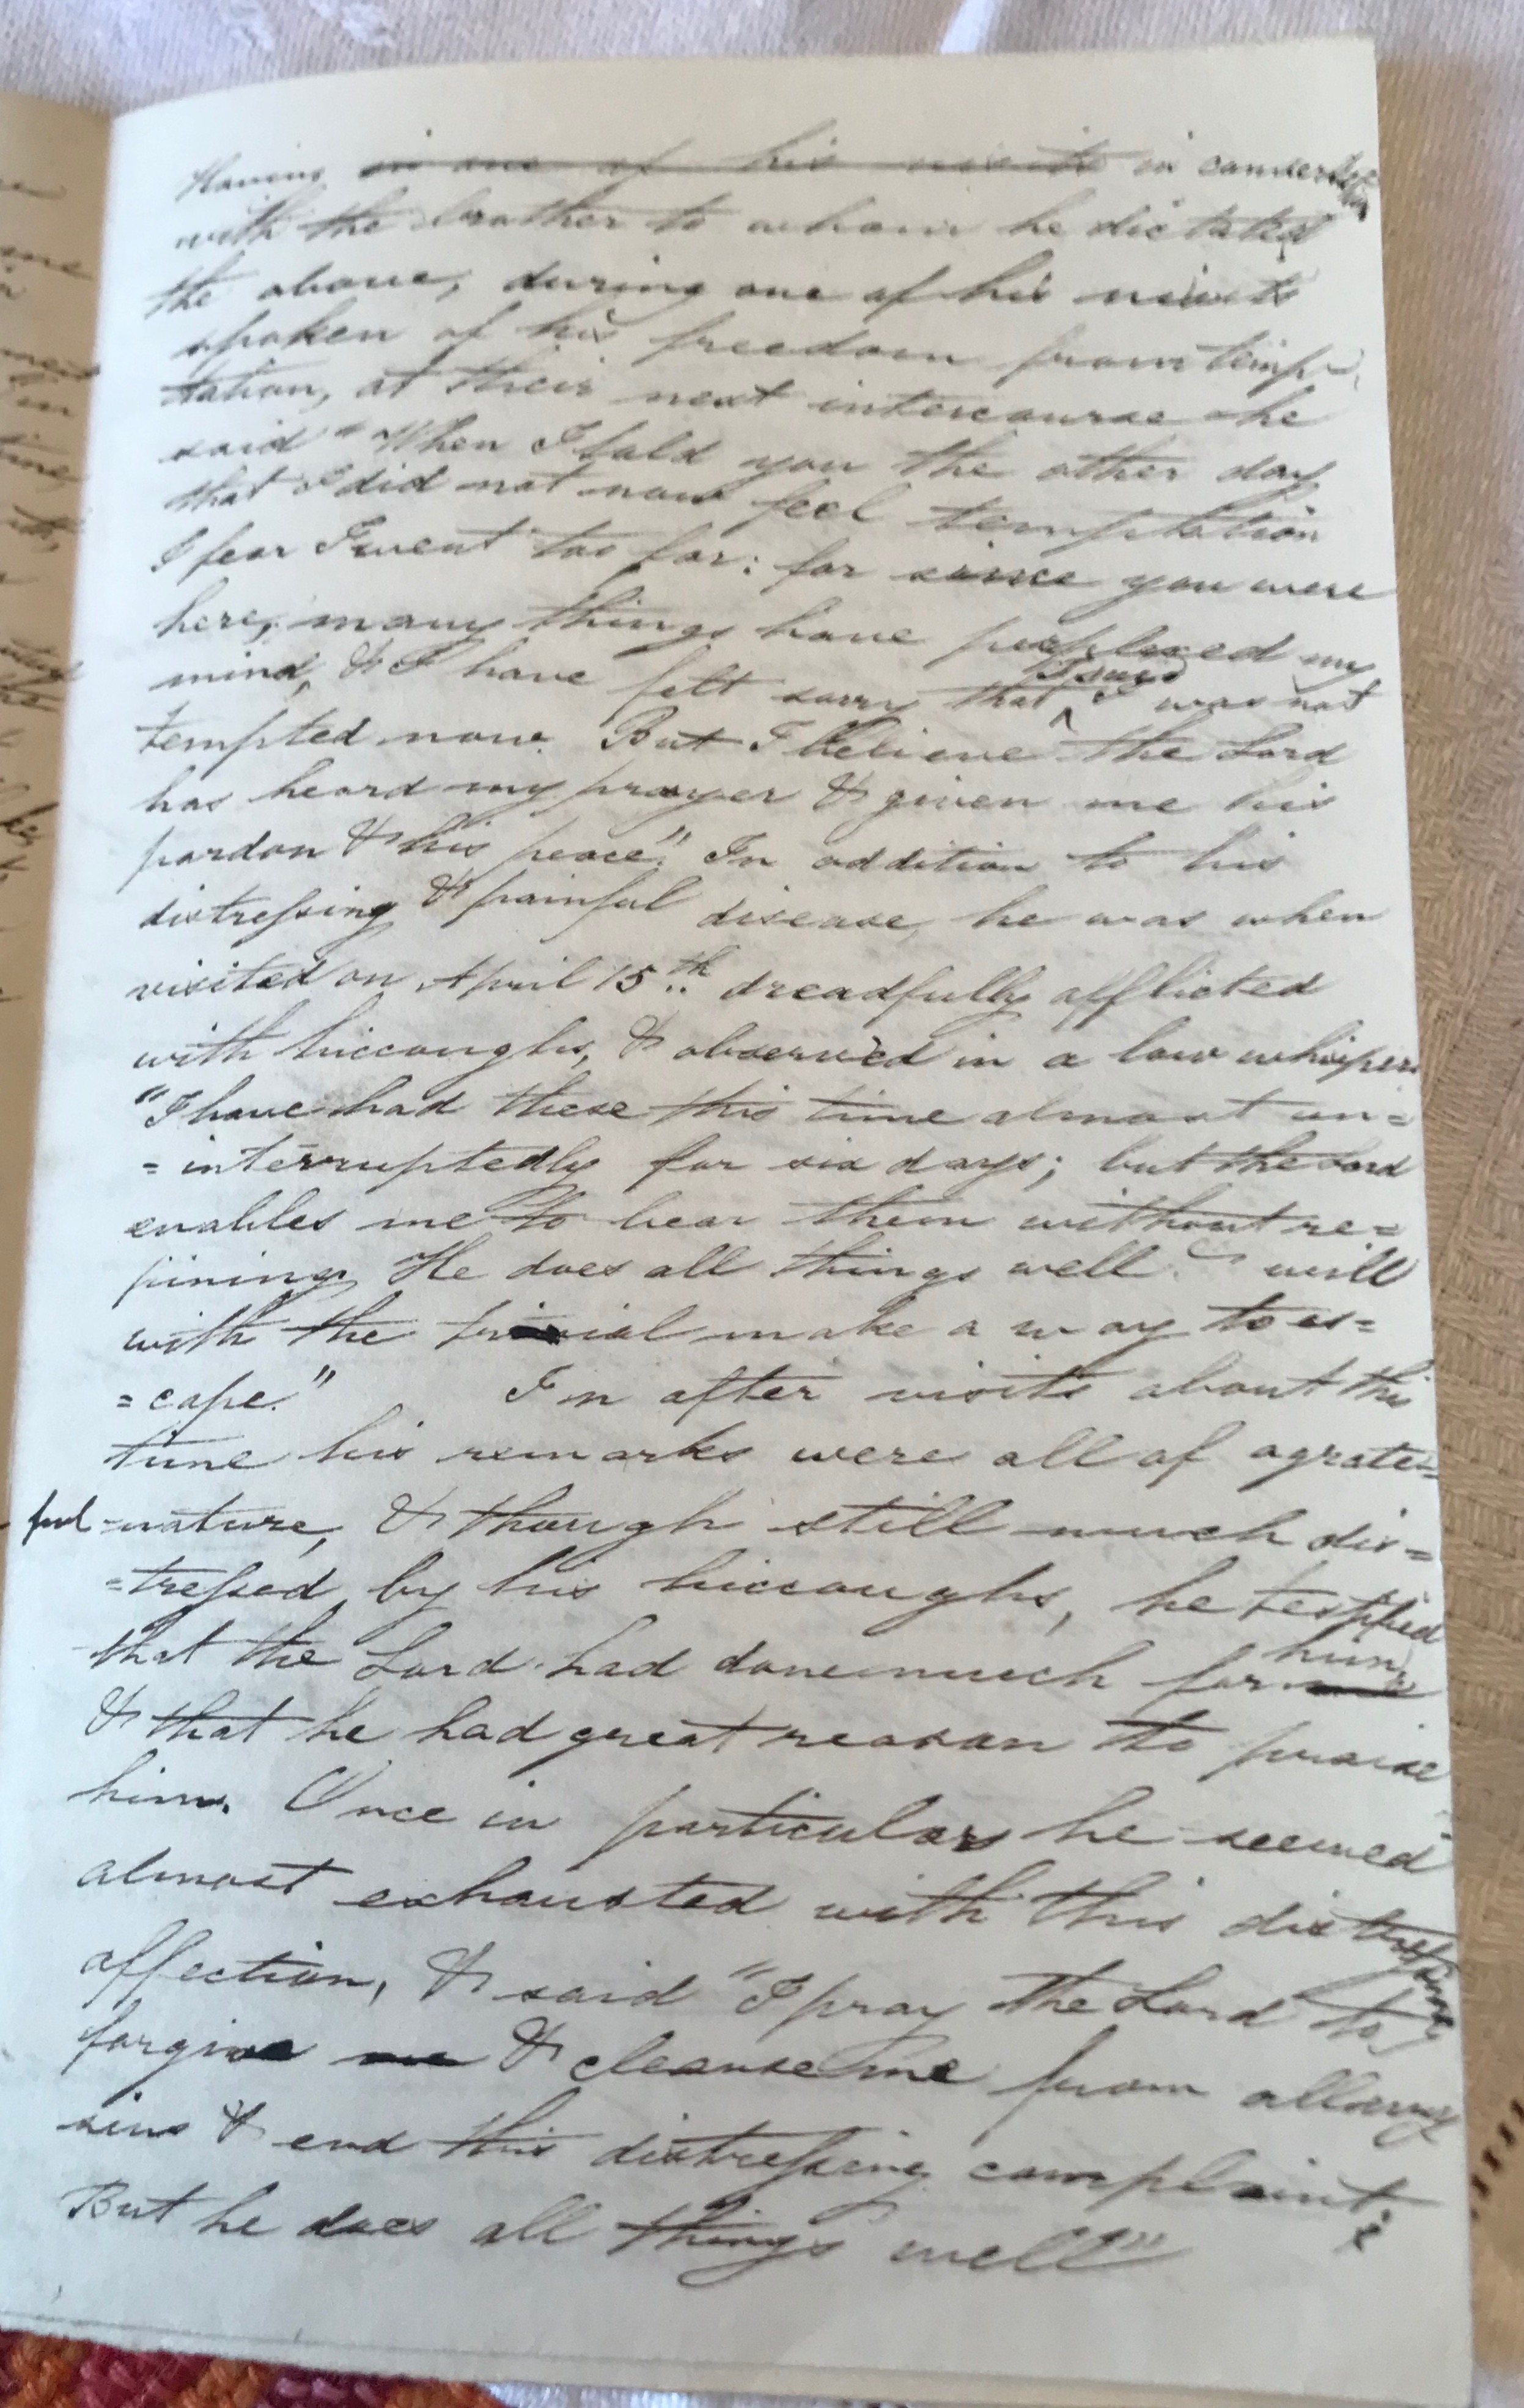 Having in one of his visits in conversation
with the brother to whom he dictated
the above, during one of his visits
spoken of his freedom from temp-
tation, at their next intercourse he
said "When I told you the other day
that I did not now feel temptation
I fear I went too far: for since you were
here, many things have perplexed my
mind, & I have felt sorry that I said I was not
tempted now. But I believe the Lord
has heard my prayer & given me his
pardon & his peace." In addition to his
distressing & painful disease, he was when
visited on April 15th dreadfully afflicted
with hiccoughs, & observed in a low whisper
"I have had these this time almost un=
=interruptedly for six days; but the Lord
enables me to bear them without re=
pining. He does all things well & will
with the trial make a way to es=
=cape." In after visits about this
time his remarks were all of a grate=
ful =nature, & though still much dis=
=tressed by his hiccoughs, he testified
that the Lord had done much for him,
& that he had great reason to praise
him. Once in particular he seemed
almost exhausted with this distressing
affection, & said "I pray the Lord to
forgive me & cleanse me from all my
sins & end this distressing complaint;
But he does all things well"